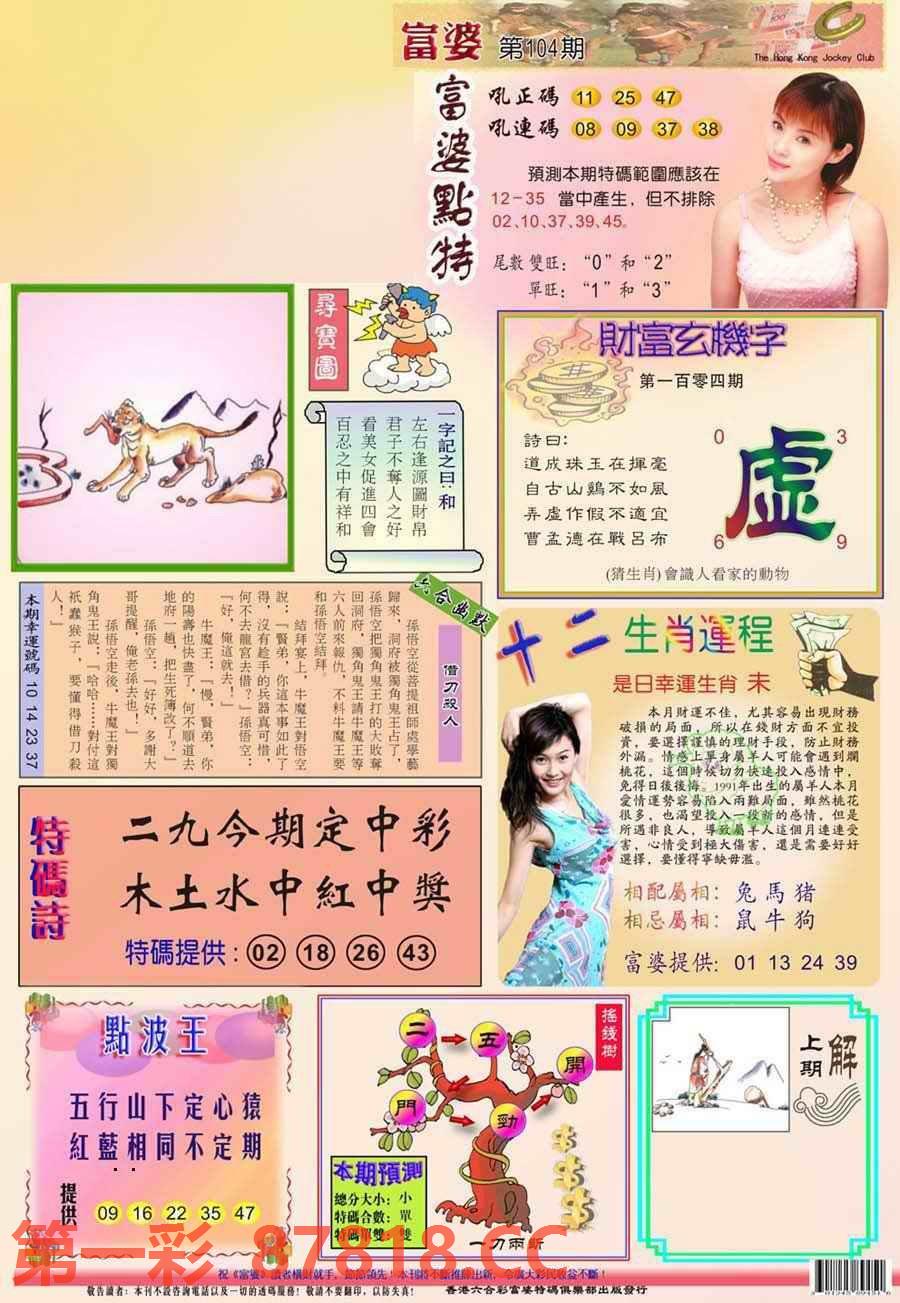 富婆 第104期
The Hong Kong Jockey Club
富婆點特
吼正碼 11 25 47
吼連碼 08 09 37 38
預測本期特碼範圍應該在
12-35 當中產生，但不排除
02、10、37、39、45。
尾數雙旺：“0”和“2”
單旺：“1”和“3”
尋寶圖
一字記之曰：和
左右逢源圖財帛
君子不奪人之好
看美女促進四會
百忍之中有祥和
財富玄機字
第一百零四期
詩曰：
道成珠玉在揮毫
自古山鷄不如風
弄虛作假不適宜
曹孟德在戰呂布
0 3
虛
6 9
(猜生肖)會識人看家的動物
六合幽默
借刀殺人
孫悟空從菩提祖師處學藝
歸來，洞府被獨角鬼王占了，
孫悟空把獨角鬼王打的大敗奪
回洞府，獨角鬼王請牛魔王等
六人前來報仇，不料牛魔王要
和孫悟空結拜。
結拜宴上，牛魔王對悟空
說：『賢弟，你這本事如此了
得，沒有趁手的兵器真可惜，
何不去龍宮去借？』孫悟空：
『好，俺這就去！』
牛魔王：『慢，賢弟，你
的陽壽也快盡了，何不順道去
地府一趟，把生死薄改了？』
孫悟空：『好好，多謝大
哥提醒，俺老孫去也！』
孫悟空走後，牛魔王對獨
角鬼王說：『哈哈……對付這
祇蠢猴子，要懂得借刀殺
人！』
本期幸運號碼 10 14 23 37
十二生肖運程
是日幸運生肖 未
本月財運不佳，尤其容易出現財務
破損的局面，所以在錢財方面不宜投
資，要選擇謹慎的理財手段，防止財務
外漏。情感上單身屬羊人可能會遇到爛
桃花，這個時候切勿快速投入感情中，
免得日後後悔。1991年出生的屬羊人本月
愛情運勢容易陷入兩難局面，雖然桃花
很多，也渴望投入一段新的感情，但是
所遇非良人，導致屬羊人這個月連連受
害，心情受到極大傷害，還是需要好好
選擇，要懂得寧缺毋濫。
相配屬相：兔馬猪
相忌屬相：鼠牛狗
富婆提供：01 13 24 39
特碼詩
二九今期定中彩
木土水中紅中獎
特碼提供：02 18 26 43
點波王
五行山下定心猿
紅藍相同不定期
提供 09 16 22 35 47
搖錢樹
二 五 開
門 勁
本期預測
總分大小：小
特碼合數：單
特碼單雙：雙
一刀兩斷
上期解
第一彩 87818.CC
敬告讀者：本刊不設咨詢電話以及一切的透碼服務！敬請不要翻印，以防失真！
香港六合彩富婆特碼俱樂部出版發行